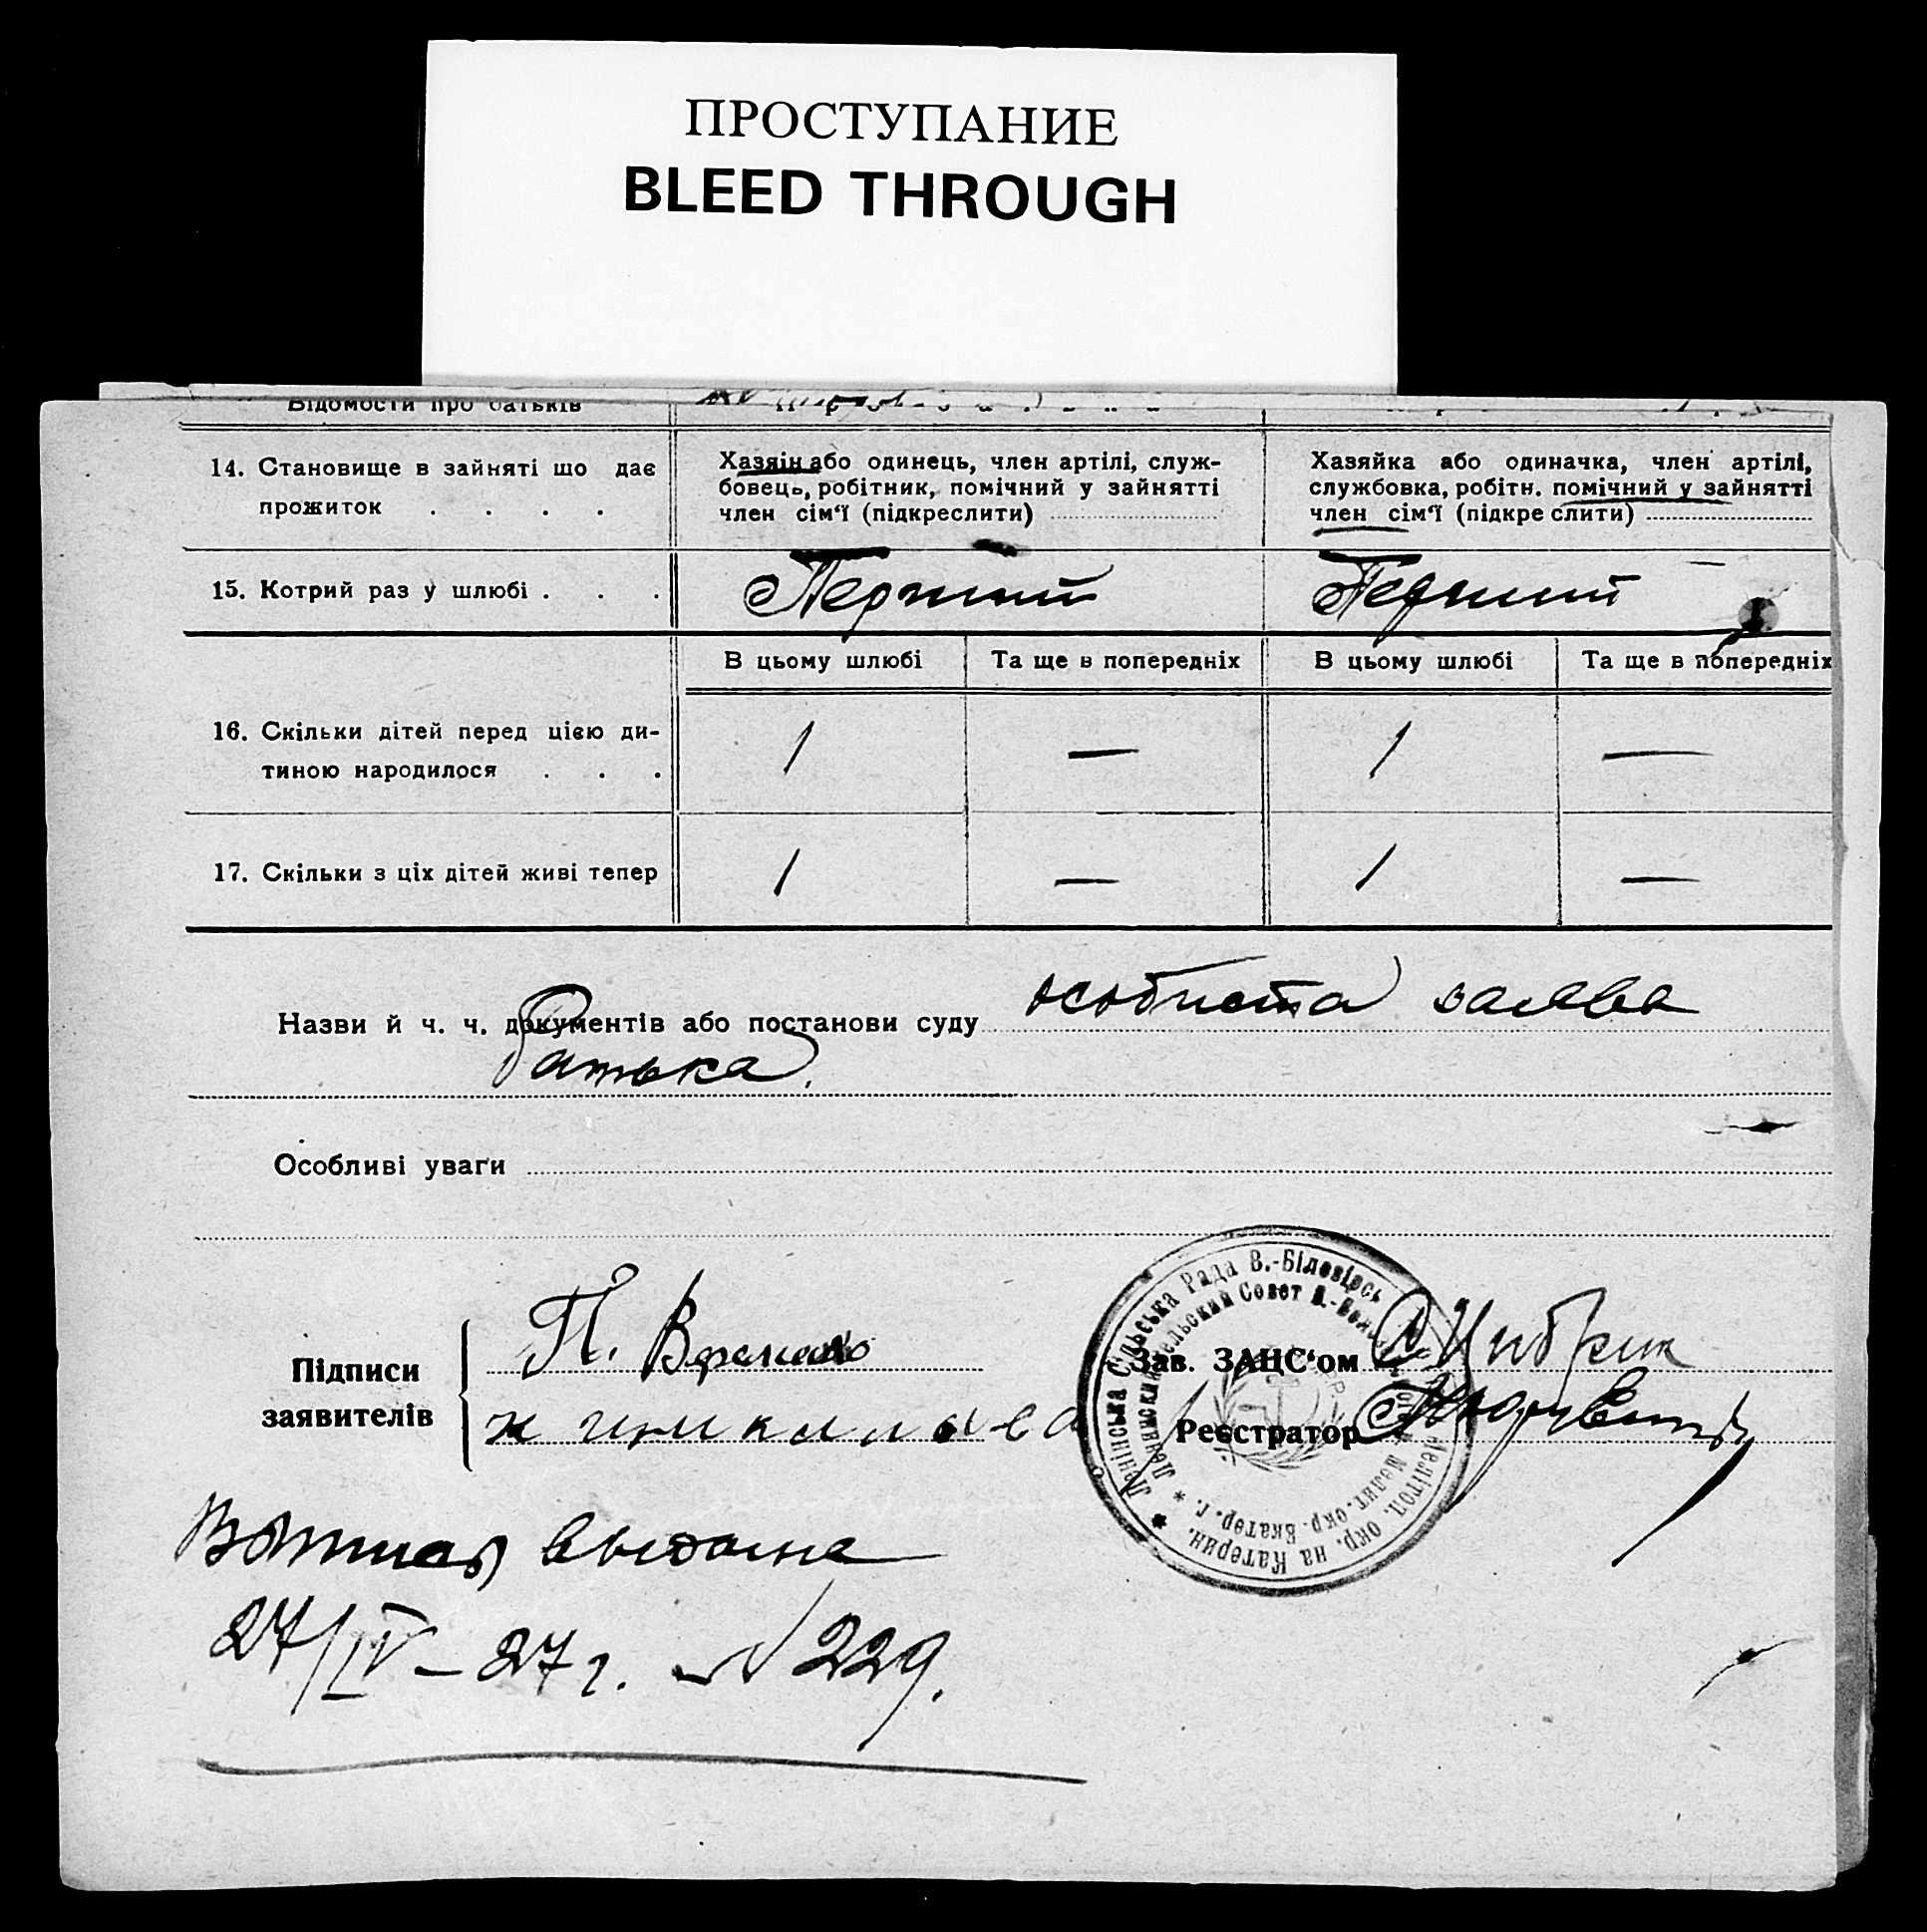 ПРОСТУПАНИЕ
BLEED THROUGH
Відомости про батьків
14. Становище в зайняті шо дає
прожиток . . . .
Хазяін або одинець, член артілі, служ-
бовець, робітник, помічний у зайнятті
член сім'ї (підкреслити)
Хазяйка або одиначка, член артілі,
службовка, робітн. помічний у зайнятті
член сім'ї (підкреслити)
15. Котрий раз у шлюбі . . .
Перший
Перший
В цьому шлюбі
Та ще в попередніх
В цьому шлюбі
Та ще в попередніх
16. Скільки дітей перед цією ди-
тиною народилося . . .
1 — 1 —
17. Скільки з ціх дітей живі тепер
1 — 1 —
Назви й ч. ч. документів або постанови суду особиста заява
батька.
Особливі уваги
Підписи
заявителів
П.
Зав. ЗАЦС'ом
Реєстратор
Ленінська Сільська Рада В.-Біловірсь
Мелітоп. окр. на Катерин.
Мелит. окр. Екатер. г.
выдана
27/IV – 27 г. № 229.